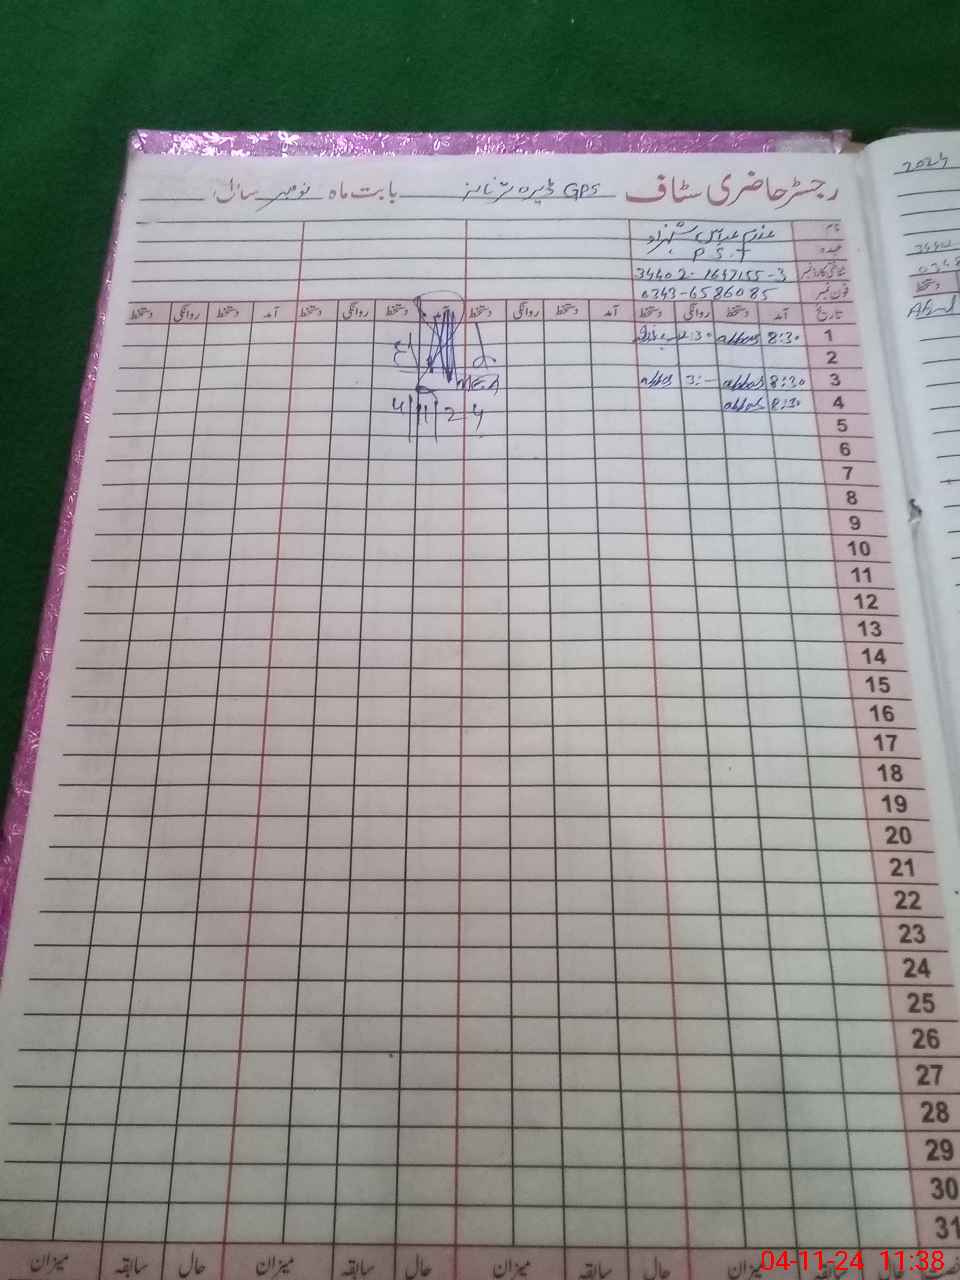 رجسٹر حاضری سٹاف GPS ڈیرہ بابت ماہ نومبر سال
2024
نام شہزاد
عہدہ P.S.T
شناختی کارڈ نمبر 34402-1647155-3
فون نمبر 0343-6586085
تاریخ آمد دستخط روانگی دستخط آمد دستخط روانگی دستخط آمد دستخط روانگی دستخط آمد دستخط روانگی دستخط
1 8:30 abbas
2
3 8:30 abbas 3:- abbas
4 8:30 abbas
4 11 24
5
6
7
8
9
10
11
12
13
14
15
16
17
18
19
20
21
22
23
24
25
26
27
28
29
30
31
میزان حال سابقہ میزان حال سابقہ میزان حال سابقہ میزان
04-11-24 11:38